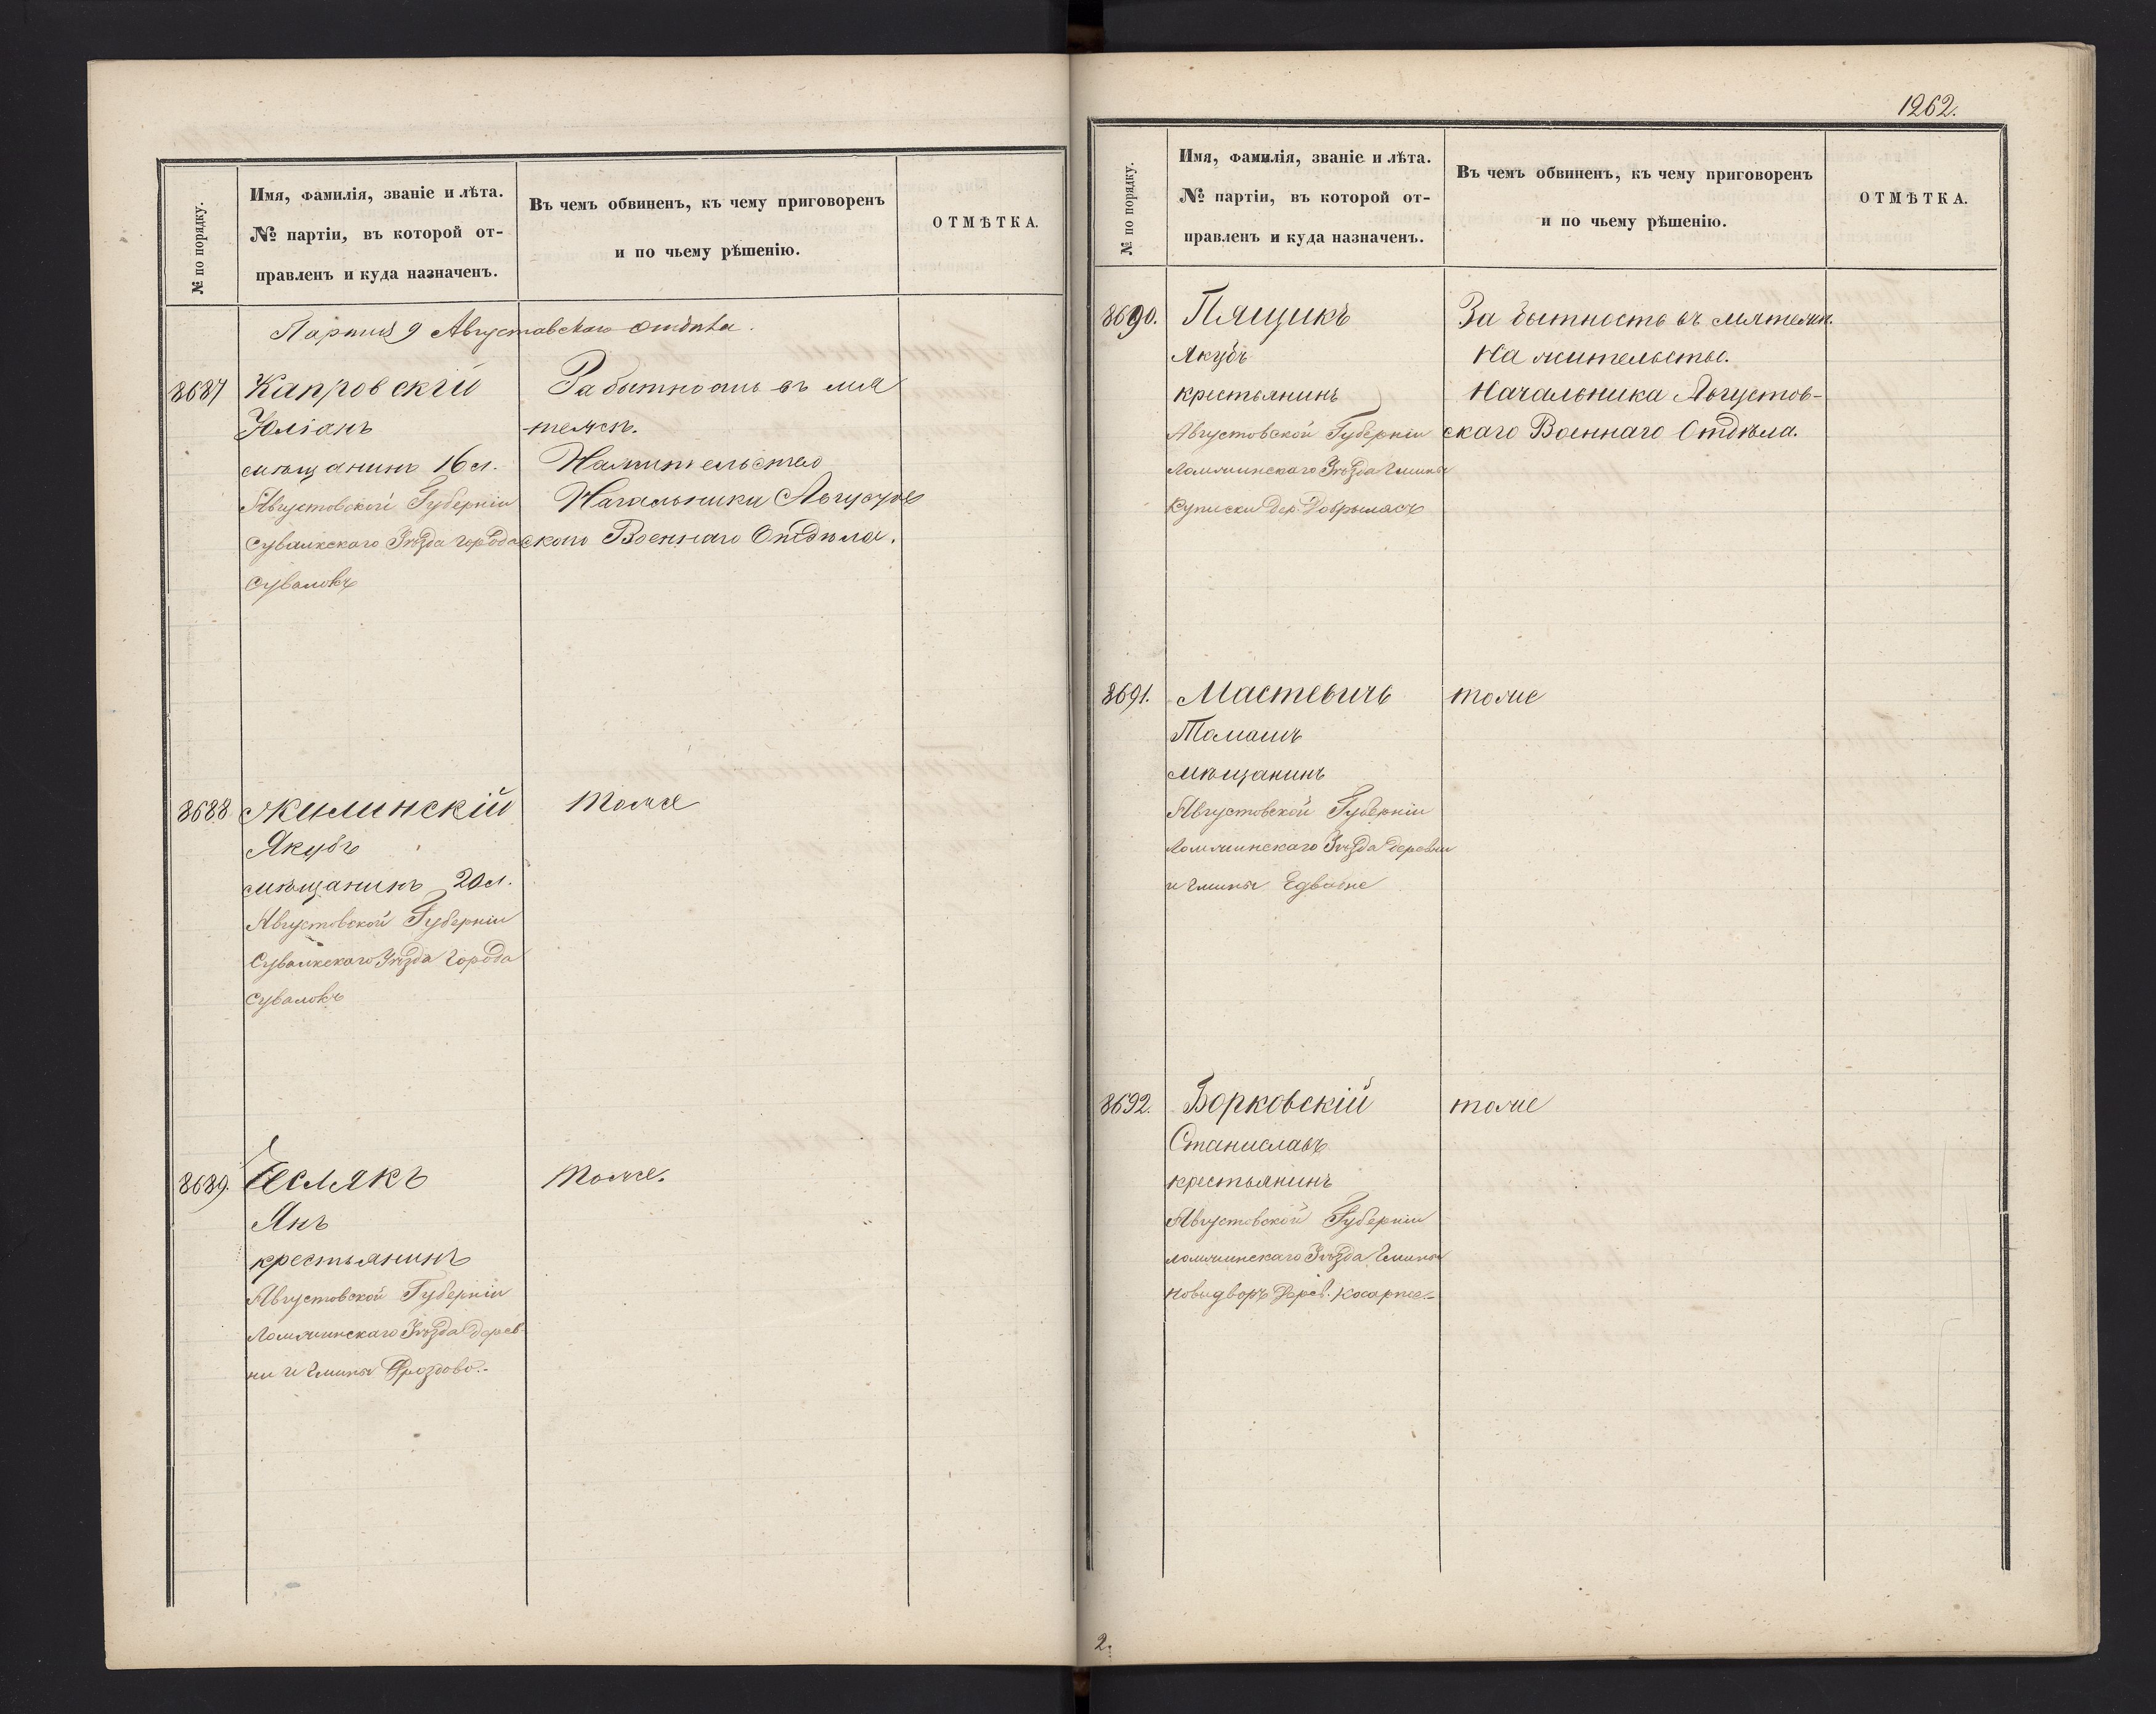 № по порядку.
Имя, фамилія, званіе и лѣта.
№ партіи, въ которой от-
правленъ и куда назначенъ.
Въ чемъ обвиненъ, къ чему приговоренъ
и по чьему рѣшенію.
ОТМѢТКА.
Партия 9 Августовскаго отдѣла.
8687
Капровскій
Юліанъ
мѣщанинъ 16 л.
Августовской Губерніи
Сувалкскаго Уѣзда города
Сувалокъ
За бытность въ мя
тежѣ.
На жительство
Начальника Августов
скаго Военнаго Отдѣла.
8688
Жилинскій
Якубъ
мѣщанинъ 20 л.
Августовской Губерніи
Сувалкскаго Уѣзда города
Сувалокъ
тоже
8689.
Чеслякъ
Янъ
крестьянинъ
Августовской Губерніи
Ломжинскаго Уѣзда дерев-
ни и гмины Дроздово.-
тоже.
1262.
№ по порядку.
Имя, фамилія, званіе и лѣта.
№ партіи, въ которой от-
правленъ и куда назначенъ.
Въ чемъ обвиненъ, къ чему приговоренъ
и по чьему рѣшенію.
ОТМѢТКА.
8690.
Пящикъ
Якубъ
крестьянинъ
Августовской Губерніи
Ломжинскаго Уѣзда гмины
Куписки дер. Добрыласъ
За бытность въ мятежѣ.
На жительство.
Начальника Августов-
скаго Военнаго Отдѣла.
8691.
Мастевичъ
Томашъ
мѣщанинъ
Августовской Губерніи
Ломжинскаго Уѣзда деревни
и гмины Едвабне
тоже
8692.
Борковскій
Станиславъ
крестьянинъ
Августовской Губерніи
Ломжинскаго Уѣзда гмины
Новыдворъ Дерев.
тоже
2.